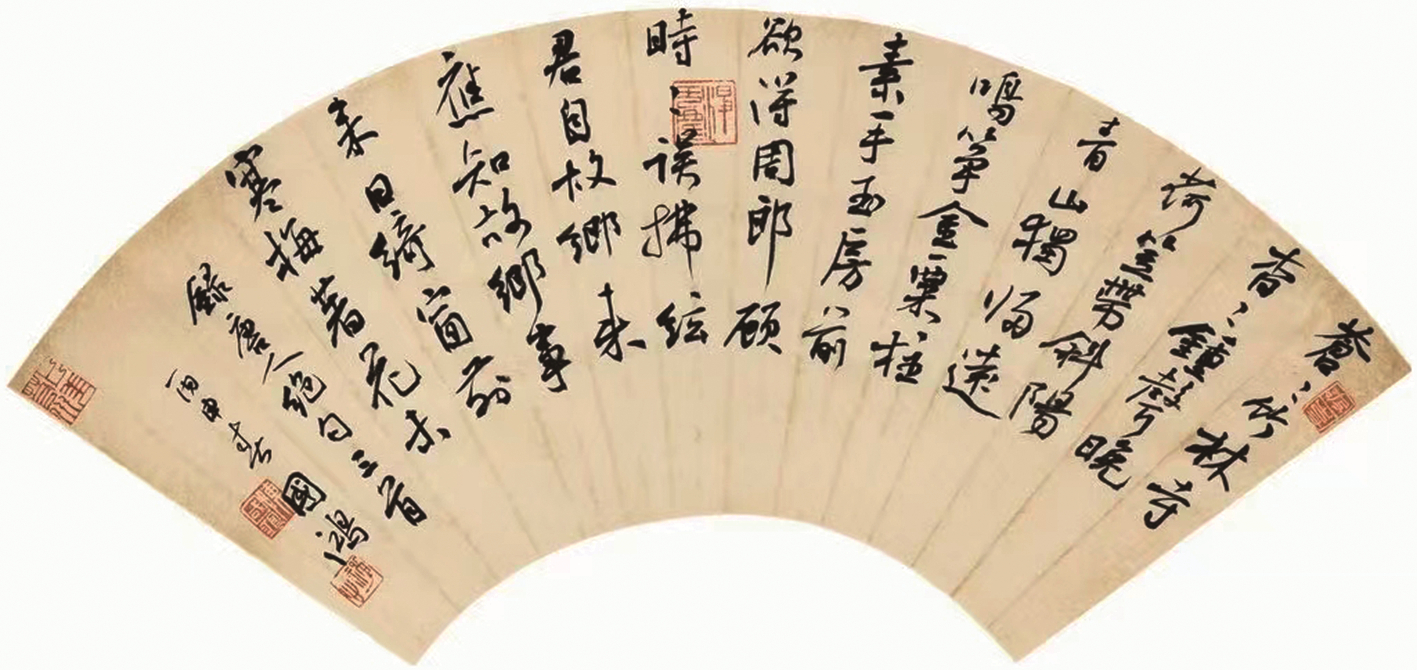 蒼〻竹林寺
杳〻鐘聲晚
荷笠帶斜陽
青山獨歸遠
鳴箏金粟柱
素手玉房前
欲得周郎顧
時〻誤拂絃
君自故鄉來
應知故鄉事
來日綺窗前
寒梅著花未
錄唐人絕句三首
丙申春 國鴻